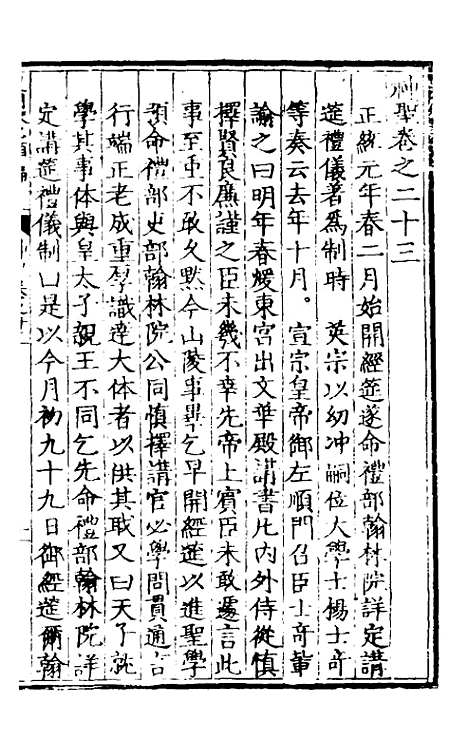 神聖卷之二十三
正統元年春二月始開經筵遂命禮部翰林院詳定講
筵禮儀著爲制時 英宗以幼冲嗣位大學士楊士奇
等奏云去年十月。宣宗皇帝御左順門召臣士奇輩
諭之曰明年春煖東宮出文華殿講書凡内外侍從慎
擇賢良廉謹之臣未幾不幸先帝上賓臣未敢遽言此
事至重不敢久默今山陵事畢乞早開經筵以進聖學
預命禮部吏部翰林院公同慎擇講官必學問貫通言
行端正老成重厚識達大体者以供其职又曰天子就
學其事体與皇太子親王不同乞先命禮部翰林院詳
定講筵禮儀制口是以今月初九十九日御經筵爾翰